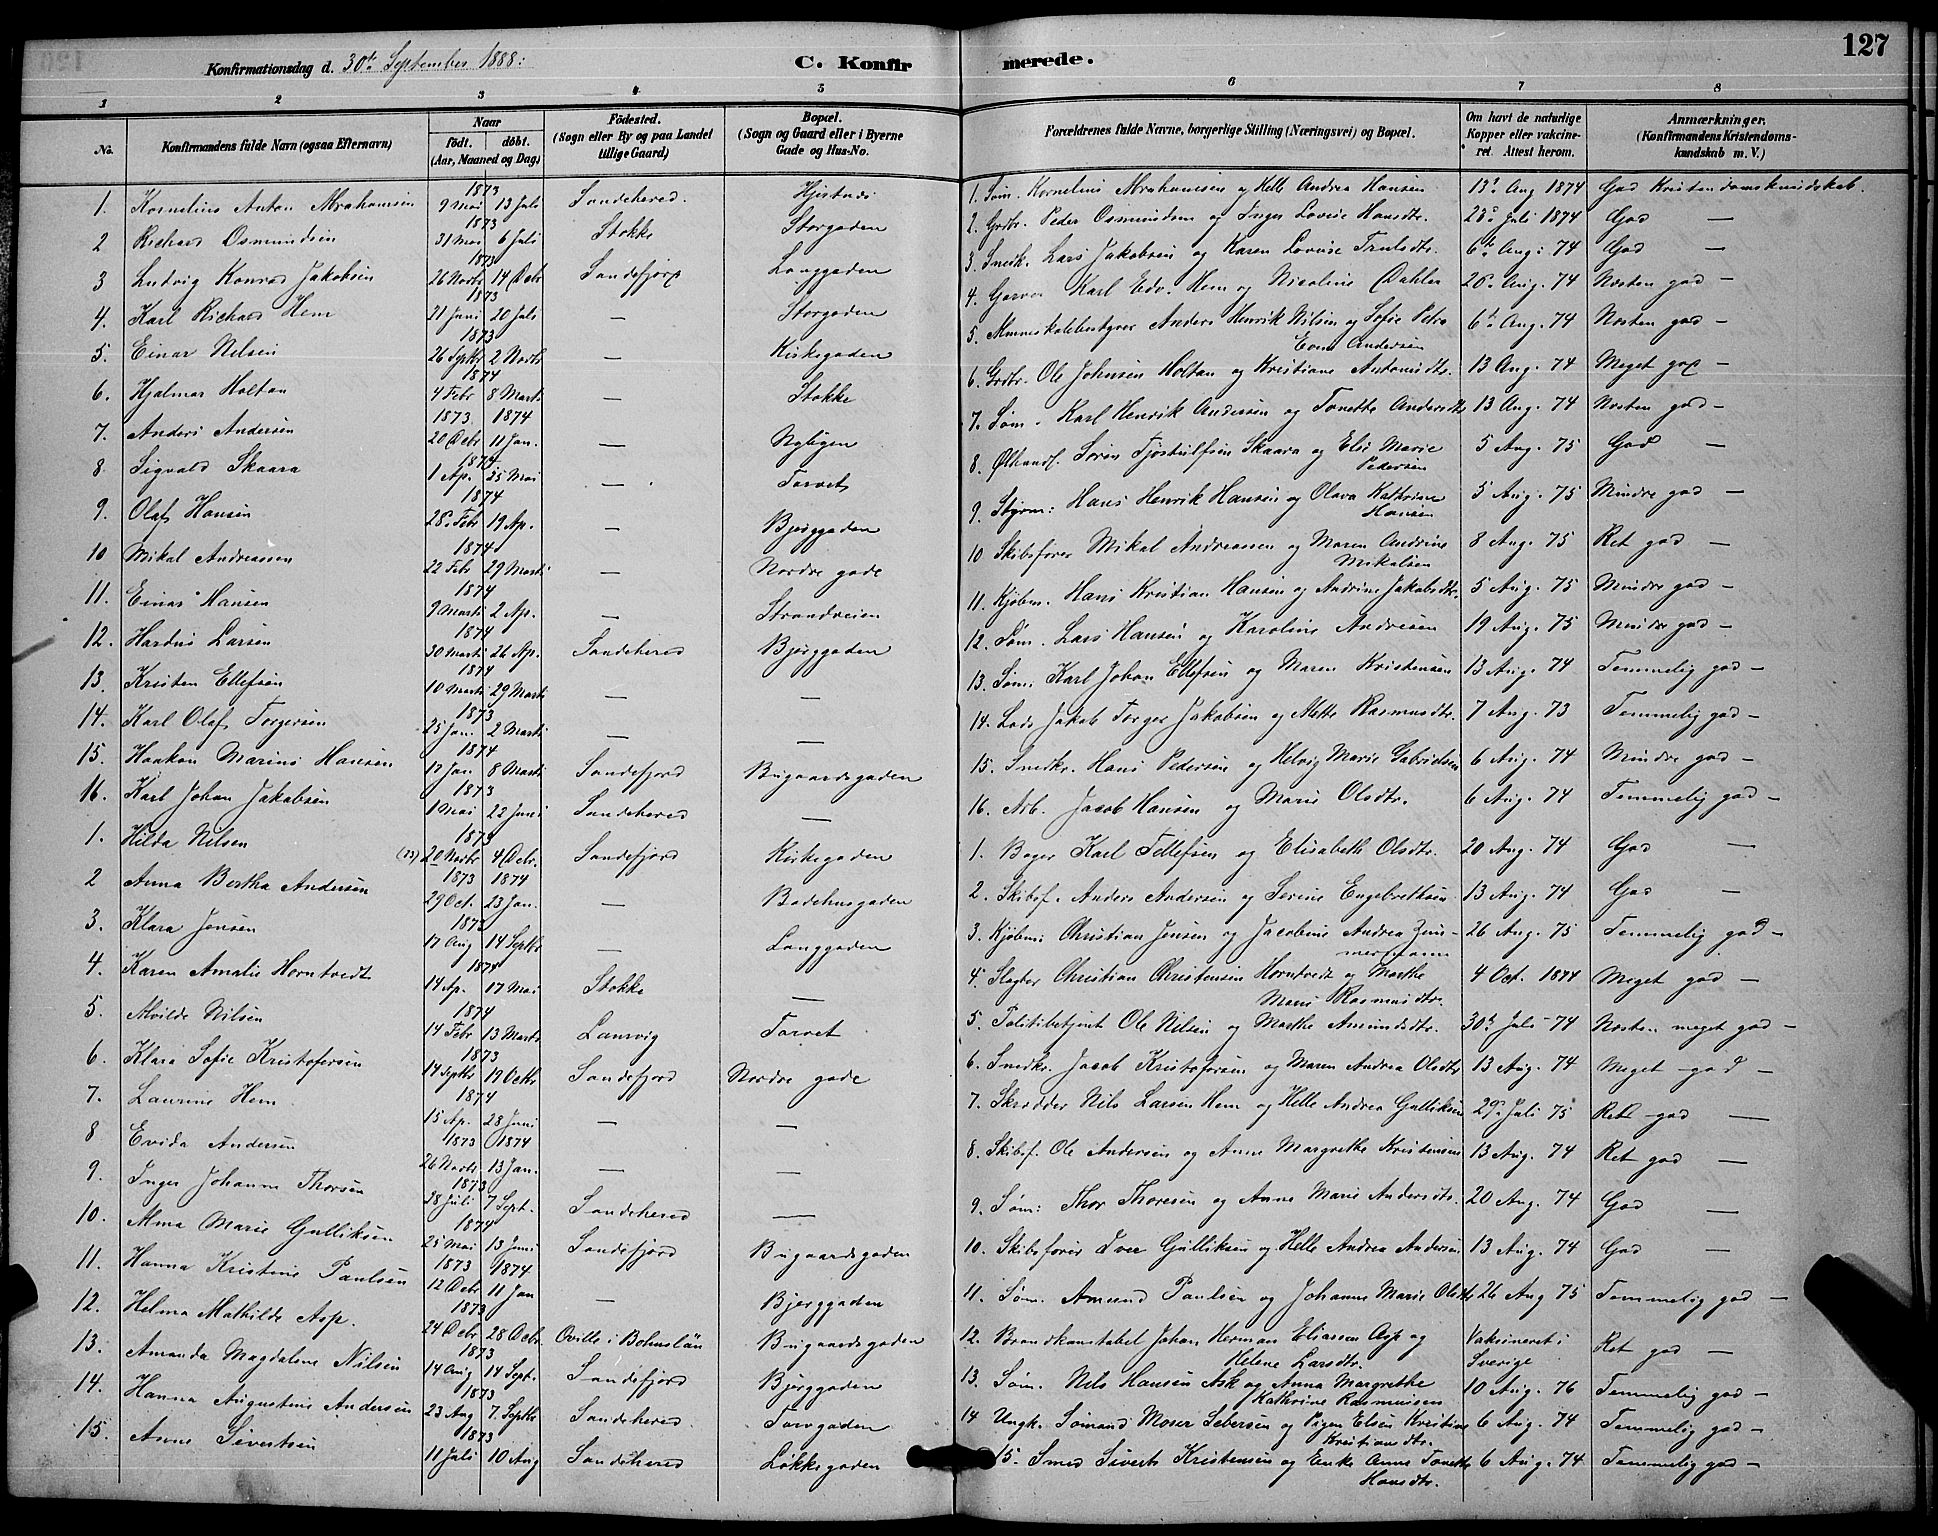 127
Konfirmationsdag d. 30te September 1888.
C. Konfirmerede.
1 2 3 4 5 6 7 8
No. Konfirmandens fulde Navn (ogsaa Efternavn) Naar födt. döbt. (Aar, Maaned og Dag) Födested. (Sogn eller By og paa Landet tillige Gaard) Bopæl. (Sogn og Gaard eller i Byerne Gade og Hus-No. Forældrenes fulde Navne, borgerlige Stilling (Næringsvei) og Bopæl. Om havt de naturlige Kopper eller vakcineret. Attest herom. Anmærkninger. (Konfirmandens Kristendomskundskab m. V.)
1. Kornelius Anton Abrahamsen 1873 9 Mai 13 Juli Sandehered. Hjertnæs 1. Søm. Kornelius Abrahamsen og Helle Andrea Hansen 13de Aug 1874 God Kristendomskundskab.
2 Richard Osmundsen 1873 31 Mai 6 Juli Stokke Storgaden 2. Grdbr. Peder Osmundsen og Inger Lovise Hansdtr. 23de Juli 1874 God —
3 Ludvig Konrad Jakobsen 1873 26 Novbr 14 Debr Sandefjord Langgaden 3. Snedk. Lars Jakobsen og Karen Lovise Trulsdtr. 6te Aug: 74 God —
4. Karl Richard Hem 1873 21 Juni 20 Juli — Storgaden 4. Garver Karl Edv. Hem og Nicoline Dahler 20de Aug. 74 Næsten god —
5. Einar Nilsen 1873 26 Septbr 2 Novbr — Kirkegaden 5. Almueskolebestyrer Anders Henrik Nilsen og Sofie Petra Andersen 6te Aug. 74 Næsten god —
6. Hjalmar Holtan 1874 4 Febr 8 Marts — Stokke 6. Grdbr. Ole Johnsen Holtan og Kristiane Antonisdtr. 13 Aug. 74 Meget god —
7. Anders Andersen 1873 1874 20 Debr 11 Jan. — Nybyen 7. Søm. Karl Henrik Andersen og Tonette Andersdtr 13 Aug. 74 Næsten god —
8 Sigvald Skaara 1874 1 Ap. 25 Mai — Torvet 8. Ølhandl. Søren Tjøstulfsen Skaara og Elis Marie Pedersen 5 Aug. 75 God —
9. Olaf Hansen 1874 28. Febr 19 Ap. — Bjerggaden 9. Styrm: Hans Henrik Hansen og Olava Kathrine Hansen 5 Aug. 75 Mindre god —
10 Mikal Andreassen 1874 22 Febr 29 Marts — Nordre gade 10 Skibsfører Mikal Andreassen og Maren Andrine Mikalsen 8 Aug. 75 Ret god —
11. Einar Hansen 1874 9 Marts 2 Ap. — Strandveien 11. Kjøbm. Hans Kristian Hansen og Andrine Jakobsdtr. 5 Aug. 75 Mindre god —
12. Hardus Larsen 1874 30 Marts 26 Ap. Sandehered Bjerggaden 12. Søm. Lars Hansen og Karoline Andresen 19 Aug. 75 Mindre god —
13. Kristen Ellefsen 1874 10 Marts 29 Marts — — 13. Søm. Karl Johan Ellefsen og Maren Kristensen 13 Aug. 74 Temmelig god —
14. Karl Olaf Torgersen 1873 25 Jan. 2 Marts — — 14. Lods Jakob Torger Jakobsen og Mette Rasmusdtr. 7 Aug. 73 Temmelig god —
15. Haakon Marius Hansen 1874 17 Jan 8 Marts Sandefjord Bugaardsgaden 15. Snedkr. Hans Pedersen og Helvig Marie Gabrielsen 6 Aug. 74 Mindre god —
16. Karl Johan Jakobsen 1873 1 Mai 22 Juni Sandehered — 16. Arb. Jacob Hansen og Marie Olsdtr. 6 Aug. 74 Temmelig god —
1. Hilda Nilsen 1873 (73) 20 Novbr 4 Debr. Sandefjord Kirkegaden 1. Bager Karl Tellefsen og Elisabeth Olsdtr. 20 Aug. 74 God —
2 Anna Bertha Andersen 1873 1874 29 Oct. 23 Jan. — Badehusgaden 2. Skibsf. Anders Andersen og Serine Engebrethsen 13 Aug. 74 God —
3. Klara Jensen 1873 17 Aug 14 Septbr — Langgaden 3. Kjøbm: Christian Jensen og Jacobine Andrea Zimmermann 26 Aug. 75 Temmelig god —
4. Karen Amalie Horntvedt 1874 14 Ap. 17 Mai Stokke — 4. Slagter Christian Christensen Horntvedt og Marthe Marie Rasmusdtr. 4 Oct. 1874 Meget god —
5. Alvilde Nilsen 1874 14 Febr 13 Marts Laurvig Torvet 5. Politibetjent Ole Nilsen og Marthe Amundsdtr. 30te Juli 74 Næsten meget god —
6. Klara Sofie Kristofersen 1873 14 Septbr 19 Octbr Sandefjord Nordre gade 6. Snedkr. Jacob Kristofersen og Maren Andrea Olsdtr 13 Aug. 74 Meget god —
7. Laurine Hem 1874 15 Ap. 28 Juni — — 7. Skrædder Nils Larsen Hem og Helle Andrea Gulliksen 29de Juli 75 Ret god —
8 Evida Andersen 1873 1874 26 Novbr 13 Jan. — — 8. Skibsf. Ole Andersen og Anne Margrethe Kristensen 13 Aug. 74 Ret god —
9. Inger Johanne Thorsen 1873 28 Juli 7 Sept. Sandehered — 9. Søm: Thor Thoresen og Anne Marie Andersdtr. 20 Aug. 74 God —
10. Alma Marie Gulliksen 1874 25 Mai 13 Juni Sandefjord Bugaardsgaden 10. Skibsfører Iver Gulliksen og Helle Andrea Andersen 13 Aug. 74 God —
11. Hanna Kristine Paulsen 1873 1874 12 Debr 11 Jan — Bjerggaden 11. Søm. Amund Paulsen og Johanne Marie Olsdtr 26 Aug 75 Temmelig god —
12. Helma Mathilde Asp. 1873 24 Debr 28 Debr. Oville i Bohuslän Bugaardsgaden 12. Brandkonstabel Johan Herman Eliassen Asp og Helene Larsdtr. Vaksineret i Sverige Ret god —
13. Amanda Magdalene Nilsen 1873 14 Aug 14 Sept. Sandefjord Bjerggaden 13. Søm. Nils Hansen Ask og Anna Margrethe Kathrine Rasmussen 10 Aug. 76 Temmelig god —
14. Hanna Augustine Andersen 1873 23 Aug 7 Septbr Sandehered Torvgaden 14 Ungk. Sømand Moser Sebersen og Pigen Elsen Kristine Kristiansdtr. 6 Aug. 74 Temmelig god —
15. Anne Sivertsen 1873 11 Juli 10 Aug Sandehered Løkkegaden 15. Smed Sivert Kristensen og Enke Anne Tonette Hansdtr. 6 Aug. 74 Temmelig god —